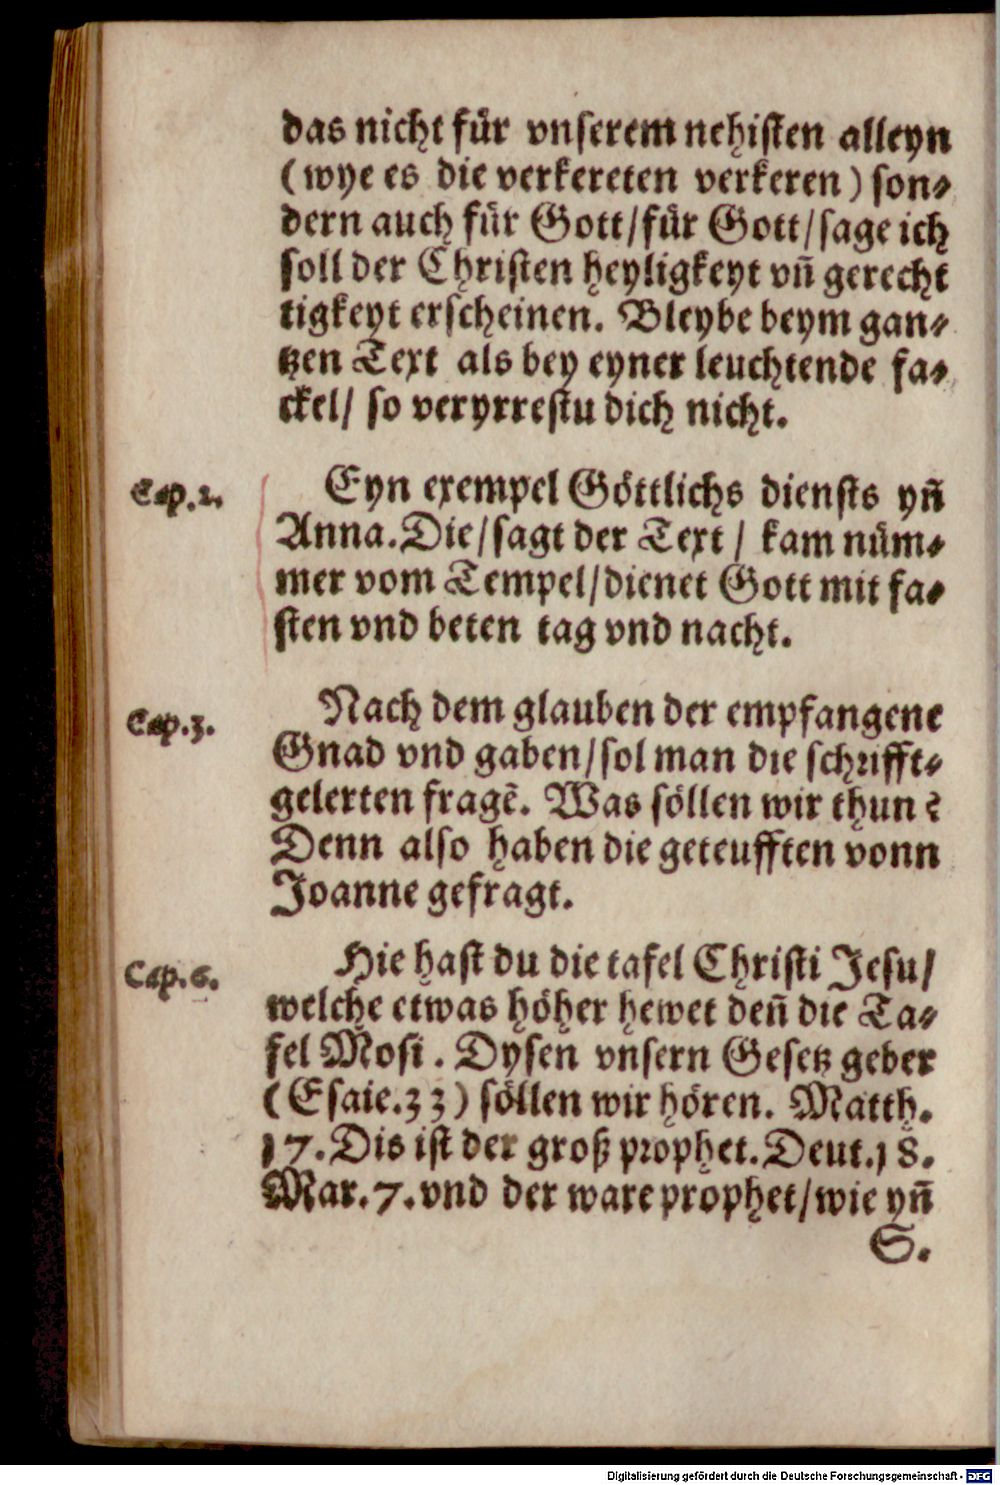 das nicht für vnserem nehisten alleyn
(wye es die verkereten verkeren) son⸗
dern auch für Gott/für Gott/sage ich
soll der Christen heyligkeyt vñ gerecht
tigkeyt erscheinen. Bleybe beym gan⸗
tzen Text als bey eyner leuchtende fa⸗
ckel/ so veryrrestu dich nicht.
Cap.2.
Eyn exempel Göttlichs diensts yñ
Anna. Die/sagt der Text/ kam nüm⸗
mer vom Tempel/dienet Gott mit fa⸗
sten vnd beten tag vnd nacht.
Cap.3.
Nach dem glauben der empfangene
Gnad vnd gaben/sol man die schrifft⸗
gelerten fragē. Was söllen wir thun?
Denn also haben die geteufften vonn
Joanne gefragt.
Cap.6.
Hie hast du die tafel Christi Jesu/
welche etwas höher hewet deñ die Ta⸗
fel Mosi. Dysen vnsern Gesetz geber
(Esaie.33) söllen wir hören. Matth.
17. Dis ist der groß prophet. Deut.18.
Mar.7. vnd der ware prophet/wie yñ
S.
Digitalisierung gefördert durch die Deutsche Forschungsgemeinschaft - DFG